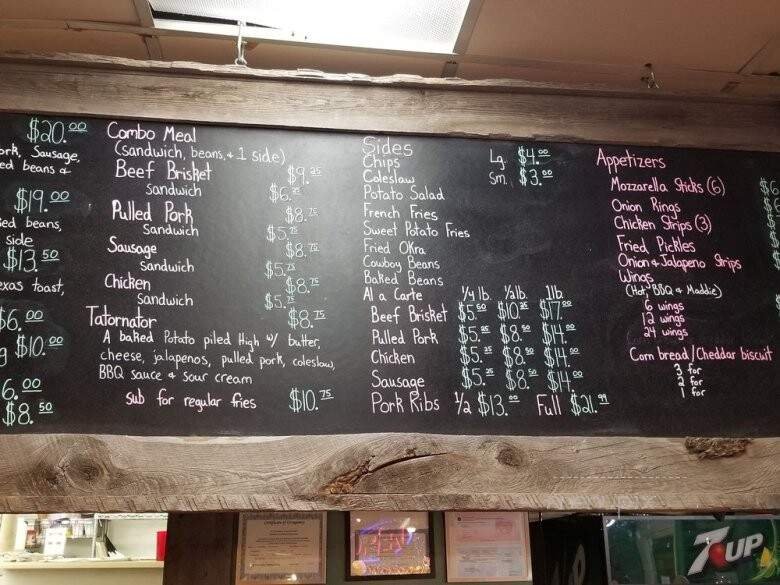 $20.00
ork, Sausage,
ed beans &
$19.00
ied beans,
side
$13.50
exas toast,
$6.00
$10.00
6.00
$8.50
Combo Meal
(Sandwich, beans, + 1 side)
Beef Brisket $9.25
Sandwich $6.25
Pulled Pork $8.75
Sandwich $5.75
Sausage $8.75
Sandwich $5.75
Chicken $8.75
Sandwich $5.75
Tatornator $8.75
A baked Potato piled High w/ butter,
cheese, jalapenos, pulled pork, coleslaw,
BBQ sauce & sour cream
sub for regular fries $10.75
Sides
Chips Lg. $4.00
Coleslaw Sm. $3.00
Potato Salad
French Fries
Sweet Potato Fries
Fried Okra
Cowboy Beans
Baked Beans
Al a Carte 1/4 lb. 1/2 lb. 1 lb.
Beef Brisket $5.50 $10.25 $17.00
Pulled Pork $5.25 $8.50 $14.00
Chicken $5.25 $8.50 $14.00
Sausage $5.25 $8.50 $14.00
Pork Ribs 1/2 $13.00 Full $21.99
Appetizers
Mozzarella Sticks (6) $6
Onion Rings
Chicken Strips (3)
Fried Pickles
Onion & Jalapeno Strips
Wings
(Hot, BBQ & Maddie)
6 wings
12 wings
24 wings
Corn bread/Cheddar biscuit
3 for
2 for
1 for
OPEN
7UP